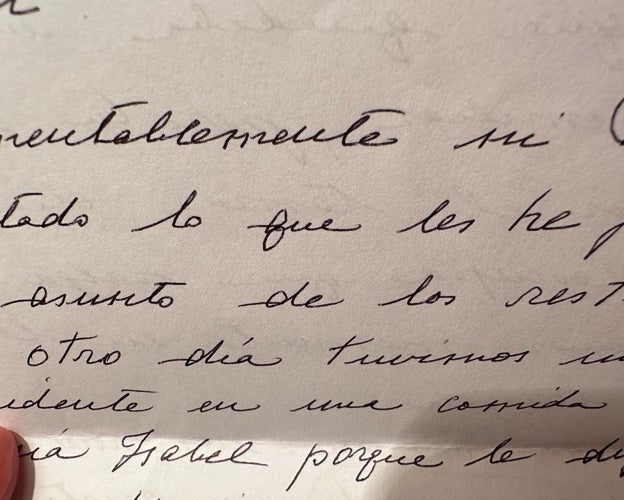 mentablemente mi
tado lo que les he p
asunto de los rest
otro día tuvimos un
idente en una comida
ía Isabel porque le di